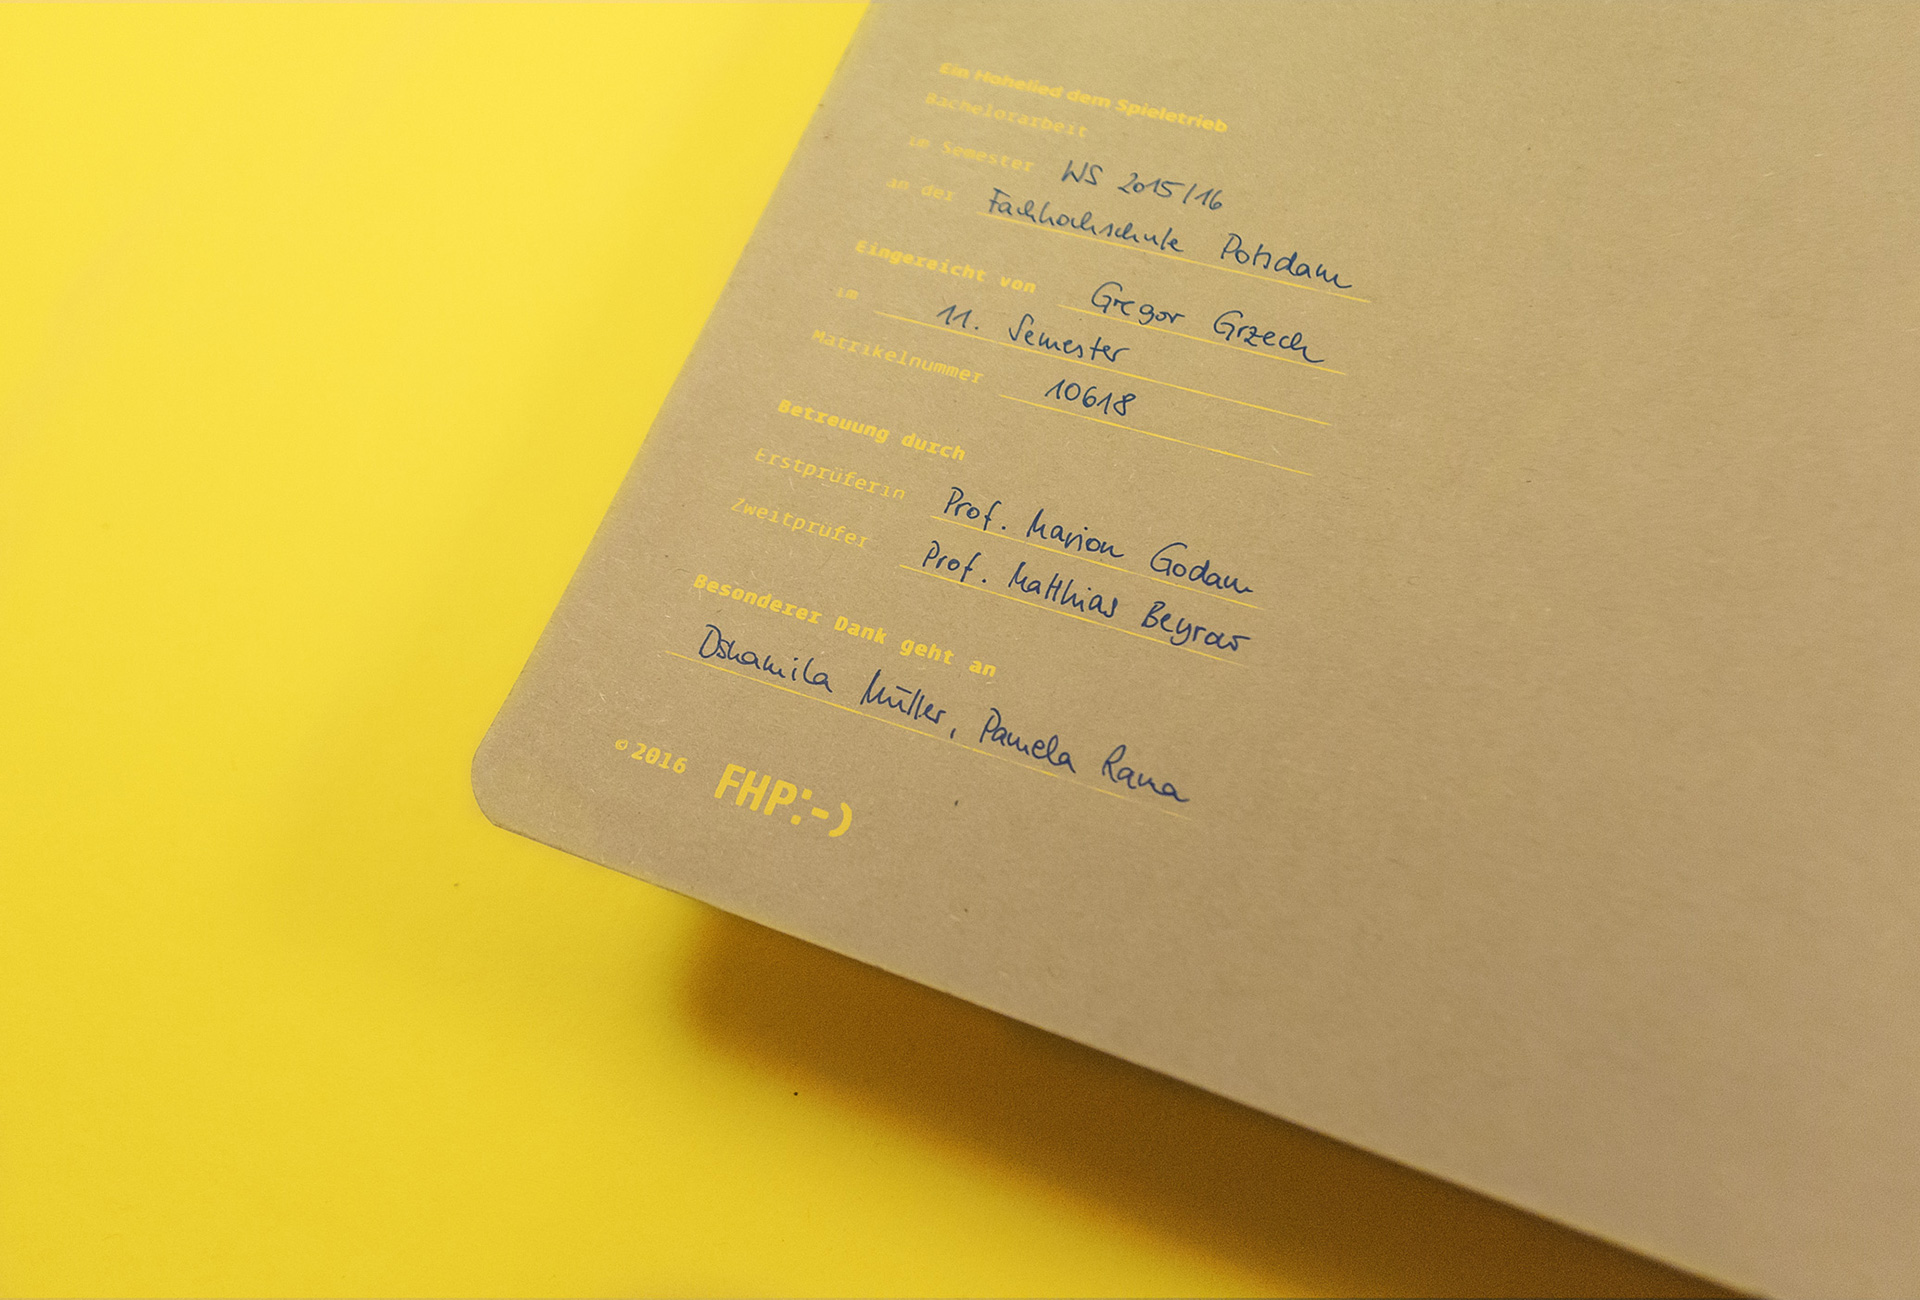 Ein Hohelied dem Spieletrieb
Bachelorarbeit
im Semester WS 2015/16
an der Fachhochschule Potsdam
Eingereicht von Gregor Grzech
im 11. Semester
Matrikelnummer 10618
Betreuung durch
Erstprüferin Prof. Marion Godau
Zweitprüfer Prof. Matthias Beyrow
Besonderer Dank geht an
Dshamila Müller, Pamela Rana
© 2016 FHP:-)